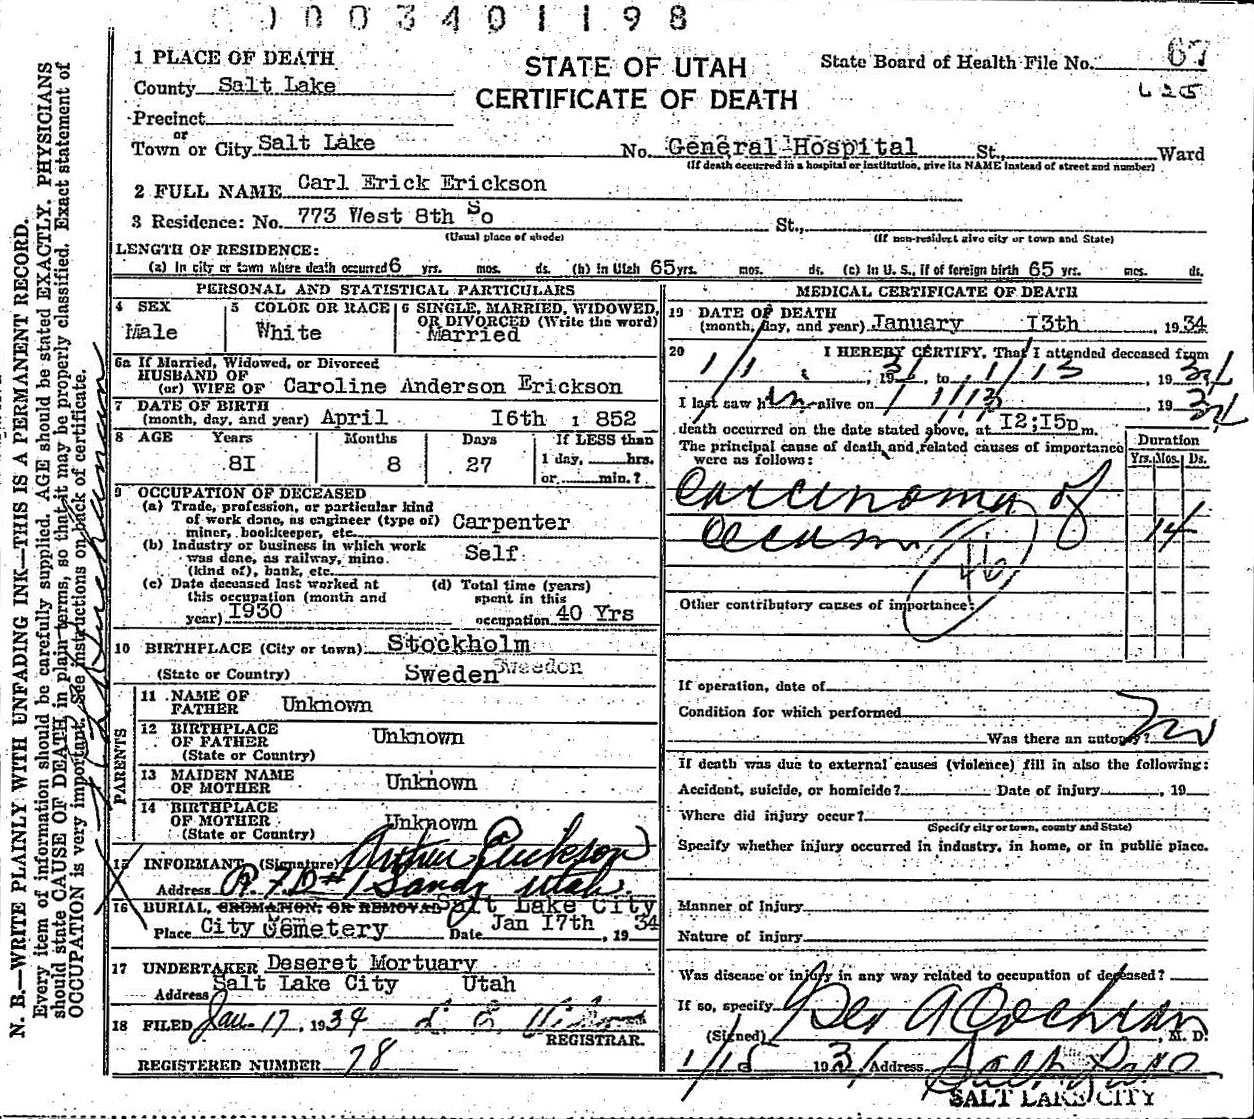 0003401198
STATE OF UTAH
CERTIFICATE OF DEATH
State Board of Health File No. 67
625
1 PLACE OF DEATH
County Salt Lake
Precinct
or
Town or City Salt Lake No. General Hospital St., Ward
(If death occurred in a hospital or institution, give its NAME instead of street and number)
2 FULL NAME Carl Erick Erickson
3 Residence: No. 773 West 8th So St.,
(Usual place of abode) (If non-resident give city or town and State)
LENGTH OF RESIDENCE:
(a) In city or town where death occurred 6 yrs. mos. ds. (b) In Utah 65 yrs. mos. ds. (c) In U. S., if of foreign birth 65 yrs. mos. ds.
PERSONAL AND STATISTICAL PARTICULARS
4 SEX
Male
5 COLOR OR RACE
White
6 SINGLE, MARRIED, WIDOWED,
OR DIVORCED (Write the word)
Married
6a If Married, Widowed, or Divorced
HUSBAND OF
(or) WIFE OF Caroline Anderson Erickson
7 DATE OF BIRTH
(month, day, and year) April I6th 1 852
8 AGE Years Months Days If LESS than
8I 8 27 1 day, hrs.
or min.?
9 OCCUPATION OF DECEASED
(a) Trade, profession, or particular kind
of work done, as engineer (type of)
miner, bookkeeper, etc. Carpenter
(b) Industry or business in which work
was done, as railway, mine
(kind of), bank, etc. Self
(c) Date deceased last worked at
this occupation (month and
year) I930
(d) Total time (years)
spent in this
occupation 40 Yrs
10 BIRTHPLACE (City or town) Stockholm
(State or Country) Sweden Sweedon
PARENTS
11 NAME OF
FATHER Unknown
12 BIRTHPLACE
OF FATHER Unknown
(State or Country)
13 MAIDEN NAME
OF MOTHER Unknown
14 BIRTHPLACE
OF MOTHER Unknown
(State or Country)
15 INFORMANT (Signature) Arthur Erickson
Address R.F.D #1 Sandy Utah.
16 BURIAL, CREMATION, OR REMOVAL Salt Lake City
Place City Cemetery Date Jan I7th, 19 34
17 UNDERTAKER Deseret Mortuary
Address Salt Lake City Utah
18 FILED Jan. 17, 1934
REGISTRAR.
REGISTERED NUMBER 78
MEDICAL CERTIFICATE OF DEATH
19 DATE OF DEATH
(month, day, and year) January I3th, 19 34
20 I HEREBY CERTIFY, That I attended deceased from
1/1, 19 to 1/13, 19 34
I last saw him alive on 1/13, 19 34
death occurred on the date stated above, at I2;I5p m.
The principal cause of death and related causes of importance
were as follows:
Duration
Yrs. Mos. Ds.
Carcinoma of
Cecum 14
46
Other contributory causes of importance:
If operation, date of
Condition for which performed
Was there an autopsy? No
If death was due to external causes (violence) fill in also the following:
Accident, suicide, or homicide? Date of injury, 19
Where did injury occur?
(Specify city or town, county and State)
Specify whether injury occurred in industry, in home, or in public place.
Manner of Injury
Nature of injury
Was disease or injury in any way related to occupation of deceased?
If so, specify
(Signed) Geo A Cochran, M. D.
1/15 193 Address Salt Lake
SALT LAKE CITY
N. B.—WRITE PLAINLY WITH UNFADING INK—THIS IS A PERMANENT RECORD.
Every item of information should be carefully supplied. AGE should be stated EXACTLY. PHYSICIANS
should state CAUSE OF DEATH in plain terms, so that it may be properly classified. Exact statement of
OCCUPATION is very important. See instructions on back of certificate.